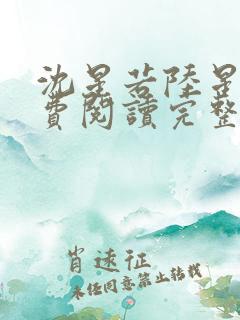 沈星若陸星
費閱讀完整
肖遠征
未任同意禁止转载